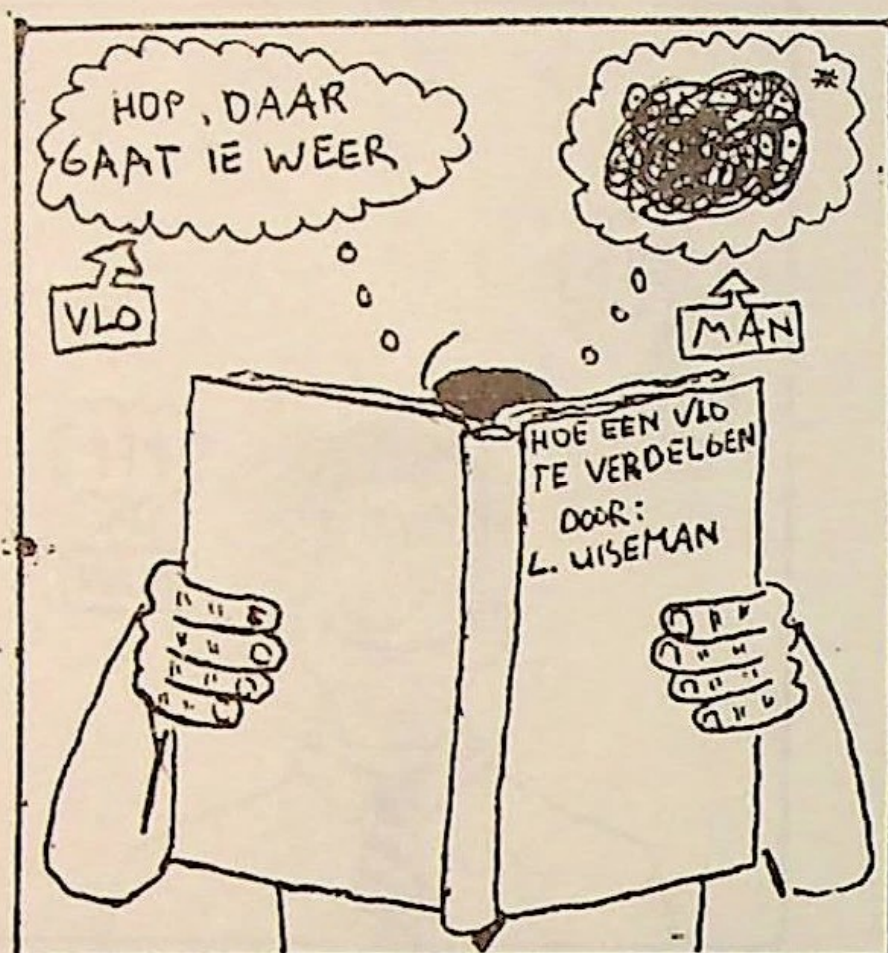 HOP, DAAR
GAAT IE WEER
VLO
*
MAN
HOE EEN VLO
TE VERDELGEN
DOOR:
L. UISEMAN